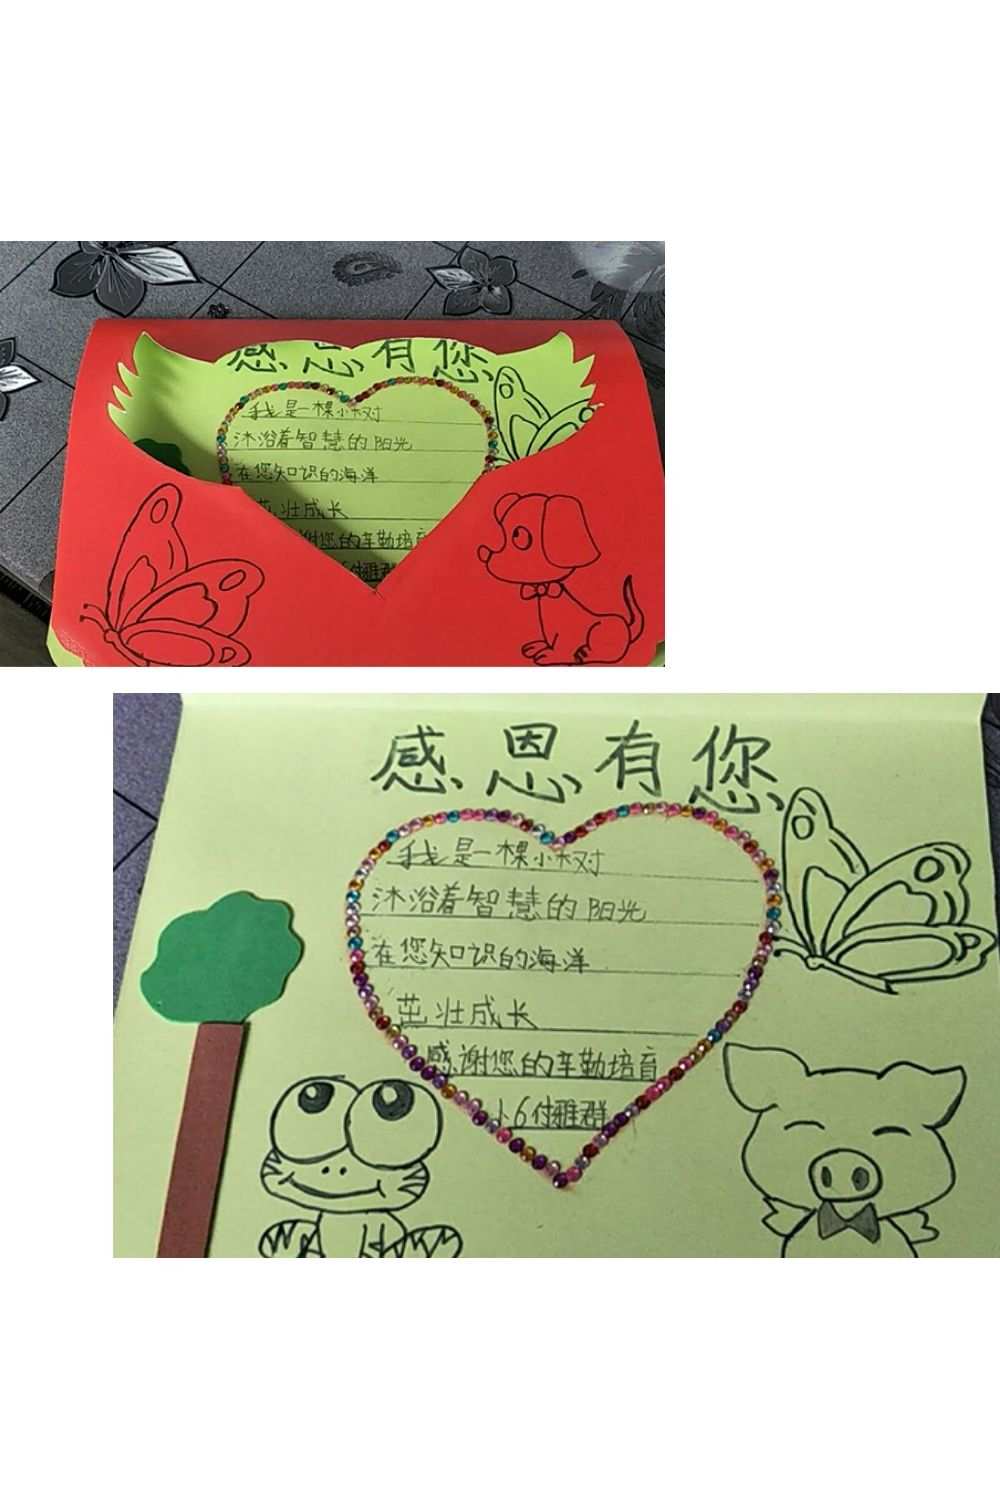 感恩有您
我是一棵小树
沐浴着智慧的阳光
在您知识的海洋
茁壮成长
谢您的辛勤培育
雅群
感恩有您
我是一棵小树
沐浴着智慧的阳光
在您知识的海洋
茁壮成长
感谢您的辛勤培育
小6付雅群